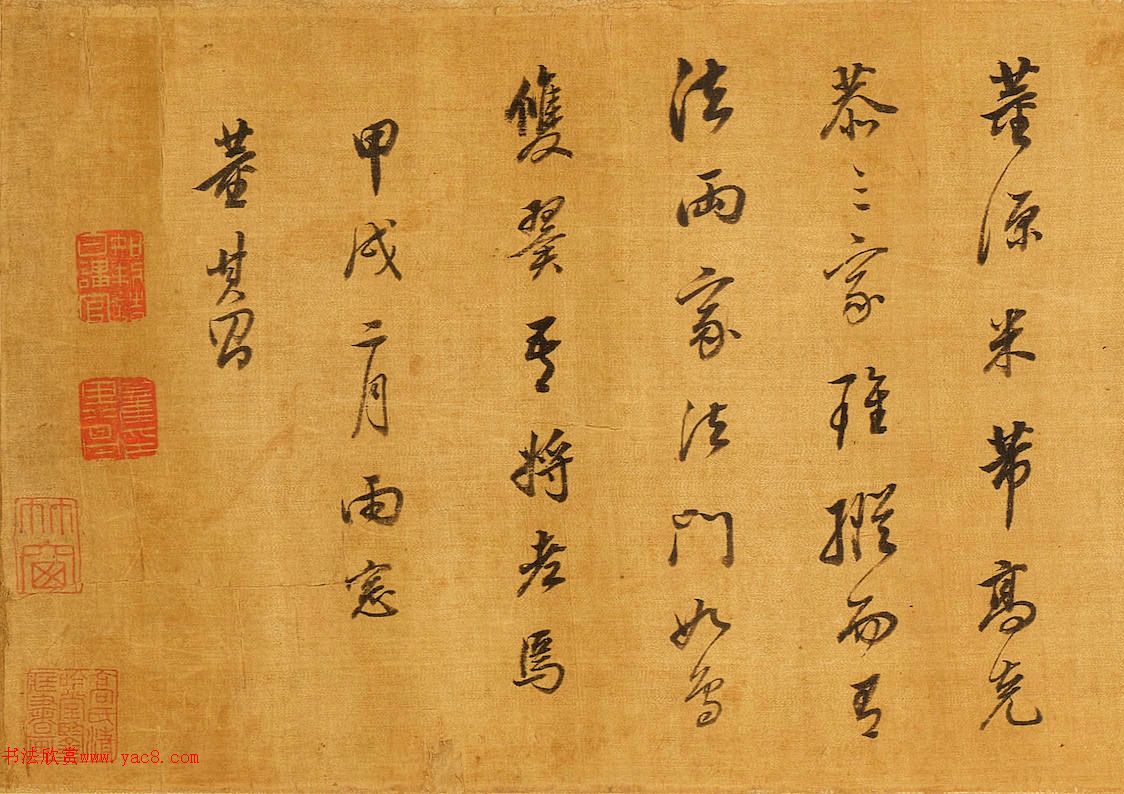 董源米芾高克
恭三家雖縱而有
法兩家法門如鳥
雙翼吾將老焉
甲戌二月雨窓
董其昌
知制誥日講官
书法欣赏www.yac8.com